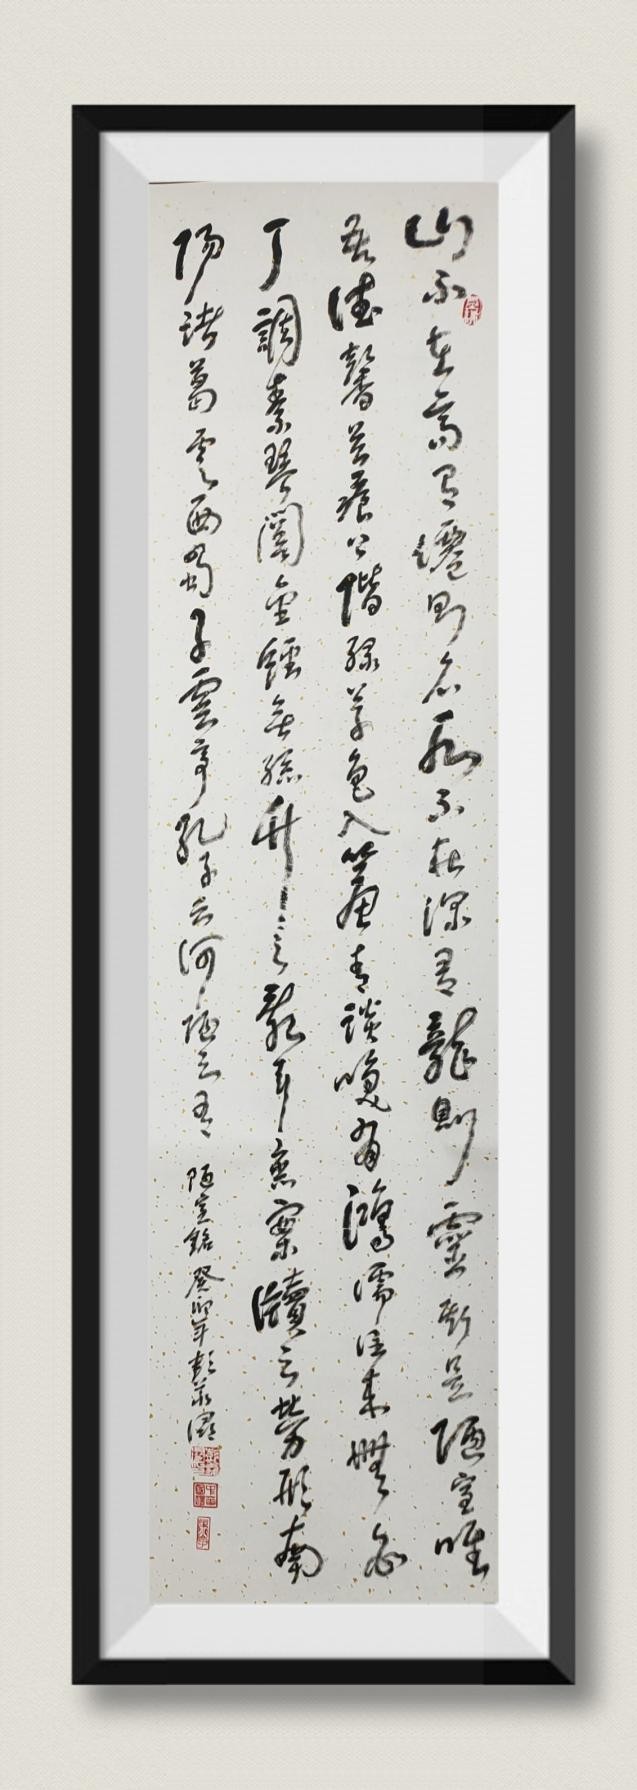 山不在高有僊則名水不在深有龍則靈斯是陋室唯
吾德馨苔痕上階緑草色入簾青談咲有鴻儒往来無白
丁調素琴閱金經無絲竹之亂耳無案牘之勞形南
陽諸葛西蜀子雲亭孔子云何陋之有
陋室銘 癸卯年彭